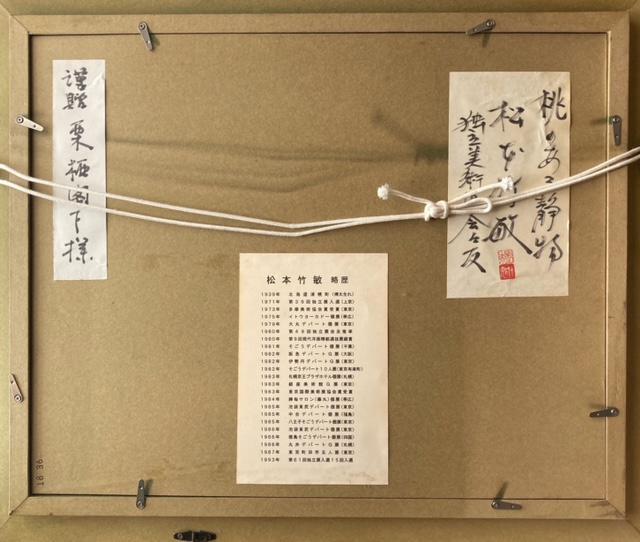 桃のある静物
松本竹敏
独立美術協会会友
謹贈 栗栖閣下様
松本竹敏 略歴
1939年 北海道浦幌町(樺太生れ)
1971年 第39回独立展入選(上京)
1973年 多摩美術協会賞受賞(東京)
1975年 イトウヨーカドー個展(帯広)
1979年 大丸デパート個展(東京)
1980年 第48回独立展会友推挙
1980年 第9回現代洋画精鋭選抜展銀賞
1981年 そごうデパート個展(千葉)
1982年 阪急デパートG展(大阪)
1982年 伊勢丹デパートG展(東京)
1982年 そごうデパート10人展(東京有楽町)
1983年 札幌京王プラザホテル個展(札幌)
1983年 銀座美術館G展(東京)
1983年 東京国際美術展協会賞受賞
1984年 勝毎サロン(藤丸)個展(帯広)
1985年 池袋東武デパート個展(東京)
1985年 中合デパート個展(福島)
1985年 八王子そごうデパート個展(東京)
1986年 池袋東武デパート個展(東京)
1986年 徳島そごうデパート個展(四国)
1986年 丸井デパートG展(札幌)
1987年 東京町田市五人展(東京)
1993年 第61回独立展入選15回入選
18 36